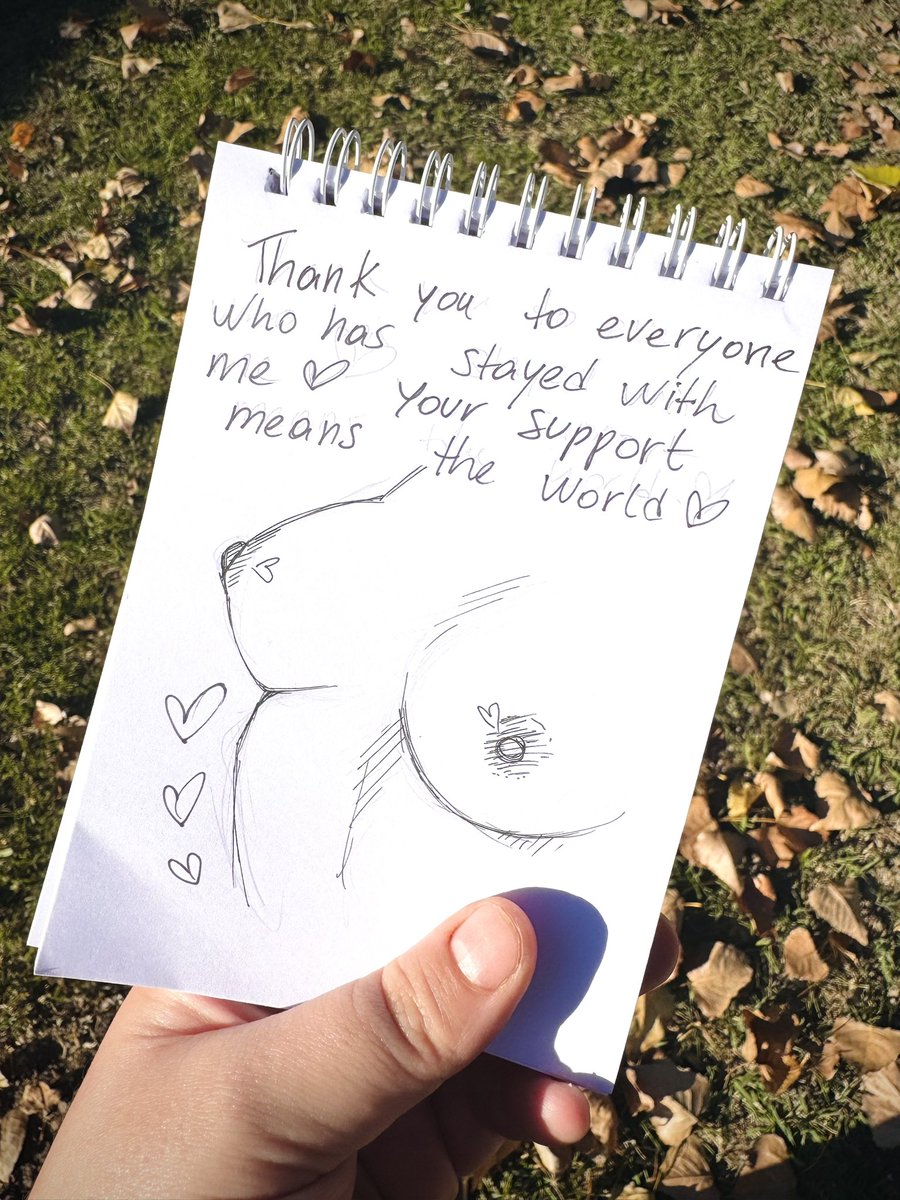 Thank you to everyone
who has stayed with
me ♡ Your support
means the world ♡